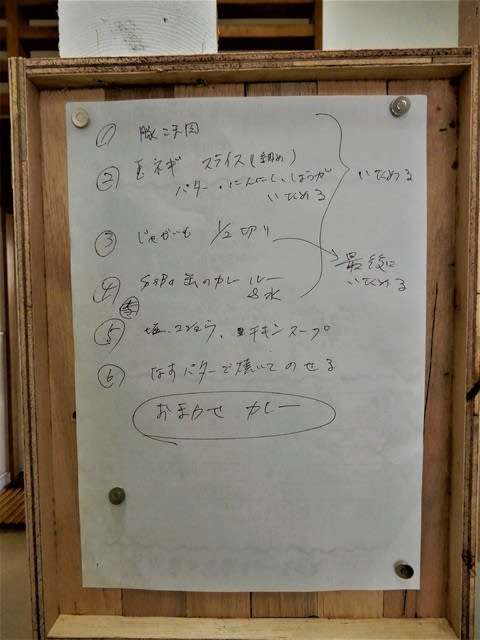 ①
② 玉ネギ スライス(細め)
バター・にんにく、しょうが
いためる
いためる
③ じゃがいも 1/2切り
最後に
いためる
④ S&Bの 缶のカレールー
&水
⑤ 塩、コショウ、チキンスープ
⑥ なすバターで焼いてのせる
おまかせ カレー